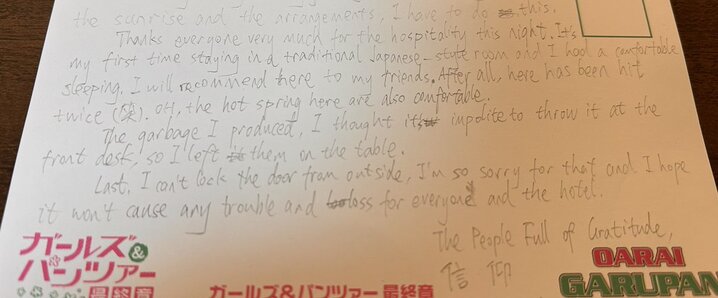 the sunrise and the arrangements, I have to do this.
Thanks everyone very much for the hospitality this night. It's
my first time staying in a traditional Japanese-style room and I had a comfortable
sleeping. I will recommend here to my friends. After all, here has been hit
twice (笑). OH, the hot spring here are also comfortable.
The garbage I produced, I thought it impolite to throw it at the
front desk, so I left them on the table.
Last, I can't lock the door from outside, I'm so sorry for that and I hope
it won't cause any trouble and loss for everyone and the hotel.
The People Full of Gratitude,
ガールズ&
パンツァー
最終章
ガールズ&パンツァー 最終章
OARAI
GARUPAN